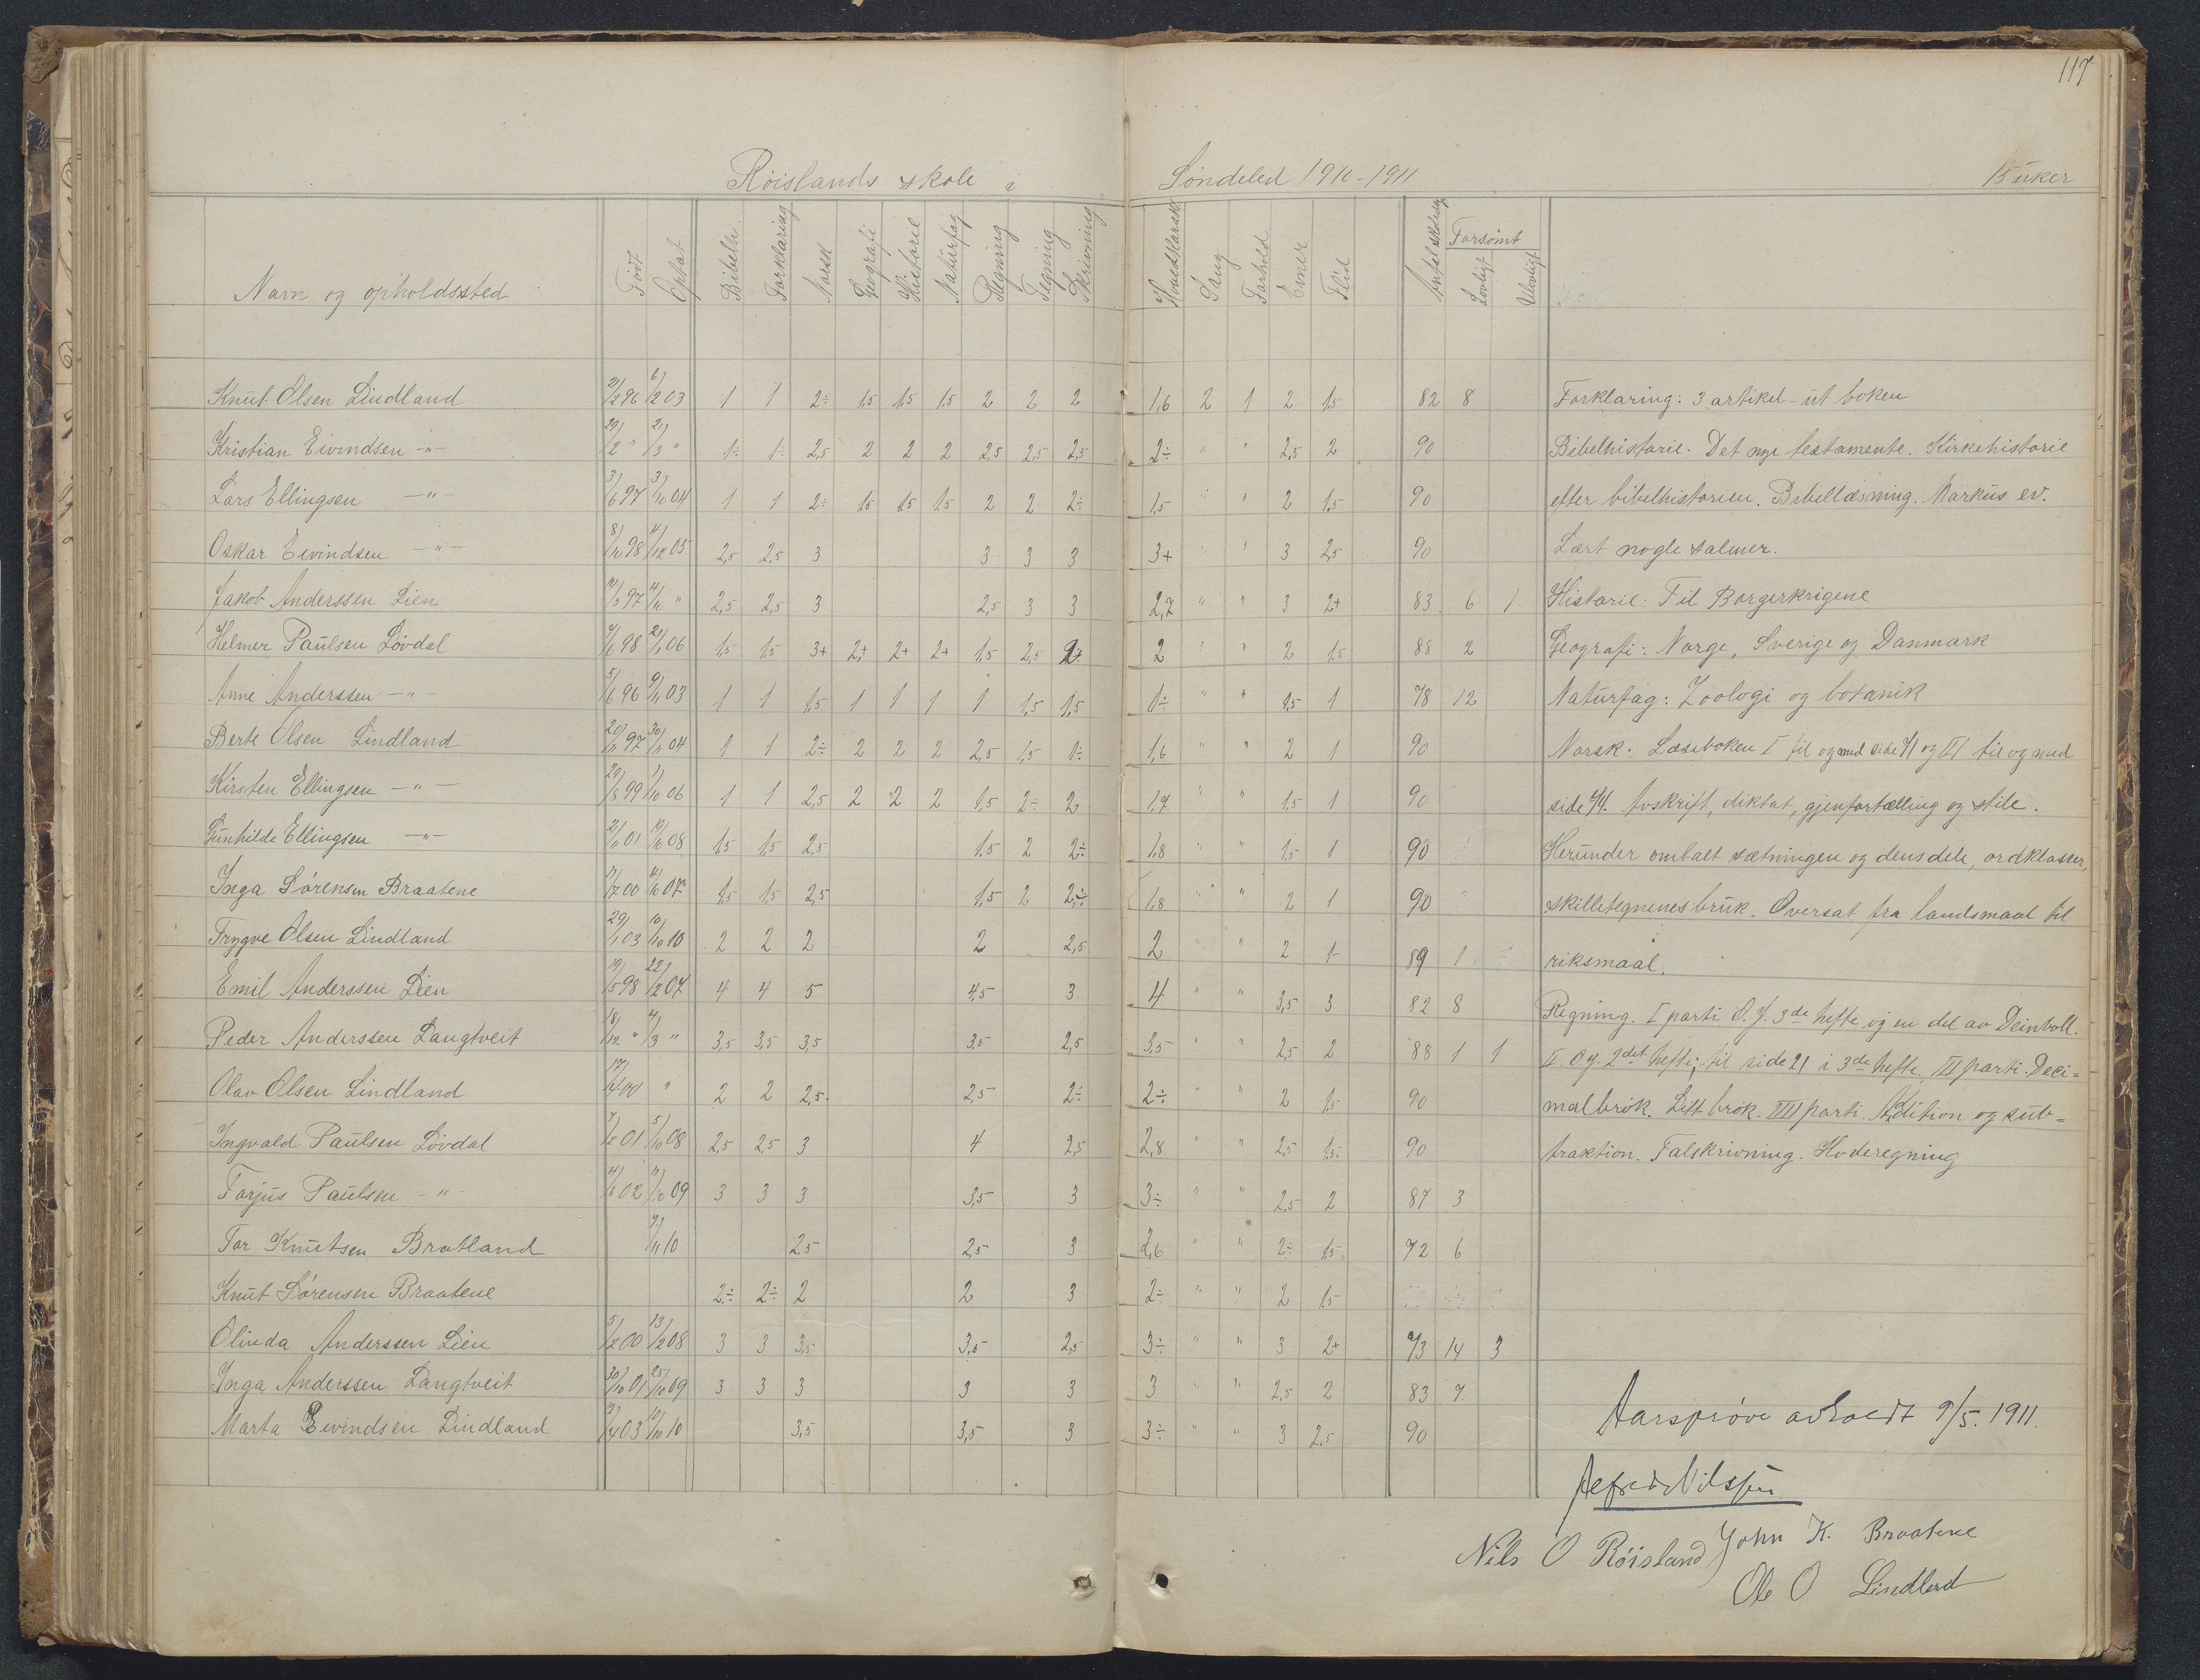 117
Röislands skole i Söndeled 1910-1911 15 uker
Navn og opholdssted Född Optat Bibelh. Forklaring Norsk Geografi Historie Naturfag Regning Tegning Skrivning Hovedkarakt. Sang Forhold Evner Flid Antal skoledg. Forsömt Lovligt Ulovligt
Knut Olsen Lindland 2/2 96 6/2 03 1 1 2÷ 1,5 1,5 1,5 2 2 2 1,6 2 1 2 1,5 82 8 Forklaring: 3 artikel - ut boken
Kristian Eivindsen -"- 29/2 " 2/3 " 1÷ 1÷ 2,5 2 2 2 2,5 2,5 2,5 2÷ " " 2,5 2 90 Bibelhistorie. Det nye testamente. Kirkehistorie
Lars Ellingsen -"- 3/6 97 3/10 04 1 1 2÷ 1,5 1,5 1,5 2 2 2÷ 1,5 " " 2 1,5 90 efter bibelhistorien. Bibellæsning. Markus ev.
Oskar Eivindsen -"- 8/10 98 4/12 05 2,5 2,5 3 3 3 3 3+ " " 3 2,5 90 Lært nogle salmer.
Jakob Anderssen Lien 97 " 2,5 2,5 3 2,5 3 3 2,7 " " 3 2+ 83 6 1 Historie: Til Borgerkrigene
Helmer Paulsen Lövdal 98 06 1,5 1,5 3+ 2+ 2+ 2+ 1,5 2,5 2+ 2 " " 2 1,5 88 2 Geografi: Norge, Sverige og Danmark
Anne Anderssen -"- 5/6 96 9/11 03 1 1 1,5 1 1 1 1 1,5 1,5 1÷ " " 1,5 1 78 12 Naturfag: Zoologi og botanik
Berte Olsen Lindland 20/11 97 30/11 04 1 1 2÷ 2 2 2 2,5 1,5 1÷ 1,6 " " 2 1 90 Norsk: Læseboken I til og med side 71 og II til og med
Kirsten Ellingsen -"- 29/8 99 1/10 06 1 1 2,5 2 2 2 1,5 2÷ 2 1,7 " " 1,5 1 90 side 74. Avskrift, diktat, gjenfortælling og stile.
Gunhilde Ellingsen -"- 2/11 01 19/10 08 1,5 1,5 2,5 1,5 2 2÷ 1,8 " " 1,5 1 90 Herunder omtalt sætningen og dens dele, ordklasser,
Inga Sörensen Braatene 11/7 00 07 1,5 1,5 2,5 1,5 2 2÷ 1,8 " " 2 1 90 skilletegnenes bruk. Oversat fra landsmaal til
Trygve Olsen Lindland 29/1 03 10/10 10 2 2 2 2 2,5 2 " " 2 1÷ 89 1 riksmaal.
Emil Anderssen Lien 19/5 98 22/12 07 4 4 5 4,5 3 4 " " 3,5 3 82 8 Regning. I parti O. J. 3de hefte og en del av Deinboll.
Peder Anderssen Langtveit 18/12 " 4/3 " 3,5 3,5 3,5 3,5 2,5 3,5 " " 2,5 2 88 1 1 II. O. J. 2det hefte; til side 21 i 3de hefte. III parti. Deci=
Olav Olsen Lindland " 2 2 2,5 2,5 2÷ 2÷ " " 2 1,5 90 malbrök. Litt brök. IIII parti. Addition og sub=
Ingvald Paulsen Lövdal 7/2 01 5/10 08 2,5 2,5 3 4 2,5 2,8 " " 2,5 1,5 90 traktion. Talskrivning. Hoderegning
Torjus Paulsen -"- 02 11/10 09 3 3 3 3,5 3 3÷ " " 2,5 2 87 3
Tor Knutsen Bratland 9/11 10 2,5 2,5 3 2,6 " " 2÷ 1,5 72 6
Knut Sörensen Braatene 2÷ 2÷ 2 2 3 2÷ " " 2 1,5
Olinda Anderssen Lien 5/2 00 13/2 08 3 3 3,5 3,5 2,5 3÷ " " 3 2+ 73 14 3
Inga Anderssen Langtveit 30/10 01 25/10 09 3 3 3 3 3 3 " " 2,5 2 83 7
Marta Eivindsen Lindland 2/4 03 10/10 10 3,5 3,5 3 3÷ " " 3 2,5 90
Aarspröve avholdt 9/5. 1911.
Alfred Nilssen
Nils O Röisland John K. Braatene
Ole O Lindland